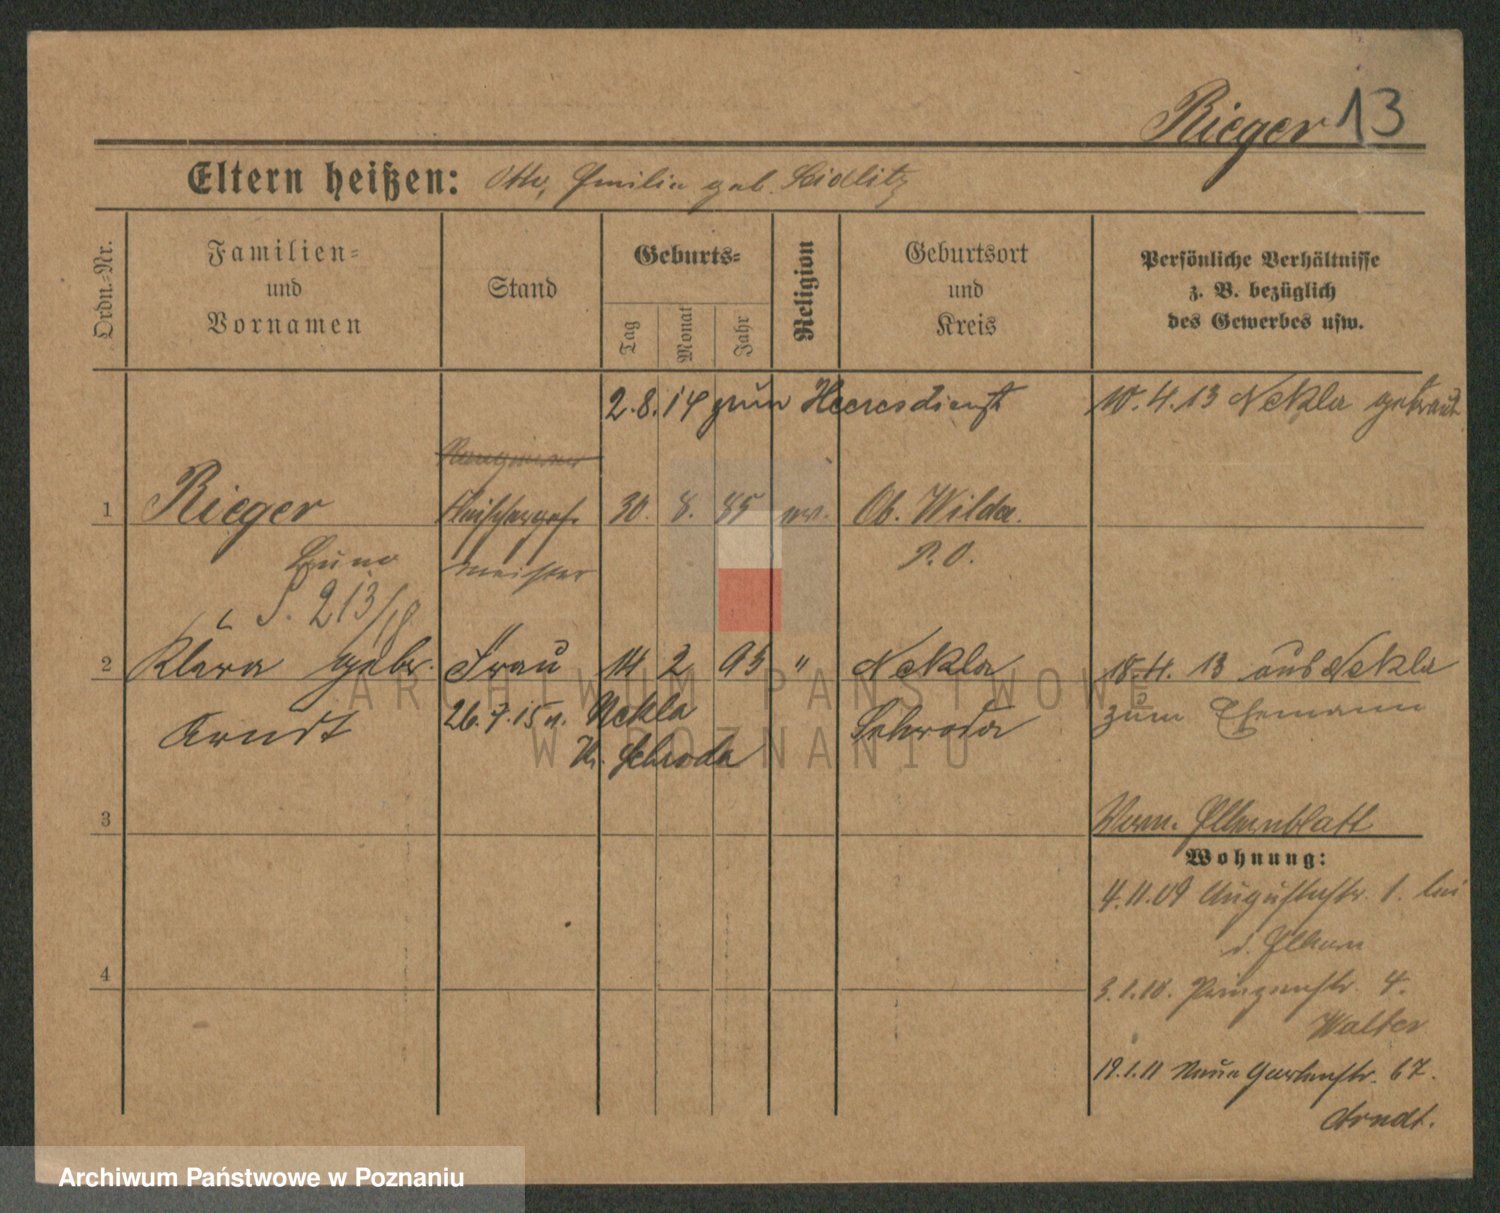 Rieger 13
Eltern heißen: Otto, Emilie geb. Seidlitz
Ordn.-Nr.
Familien-
und
Vornamen
Stand
Geburts-
Tag
Monat
Jahr
Religion
Geburtsort
und
Kreis
Persönliche Verhältnisse
z. B. bezüglich
des Gewerbes usw.
2.8.14 zum Heeresdienst
10.4.13 Nekla getraut
1 Rieger Fleischerges. 30. 8. 85 ev. Ob. Wilda.
Bruno meister P. O.
S. 213/
2 Klara gebr. Frau 14 2 93 " Nekla 18.4.13 aus Nekla
Arndt 26.7.15 n. Nekla Schroda zum Ehemann
Kr. Schroda
3 Verm. Elternblatt
Wohnung:
4.11.09 Augustastr. 1. bei
d. Eltern
4
3.1.10. Prinzenstr. 4.
Walter
19.1.11 Neue Gartenstr. 67.
Arndt.
ARCHIWUM PAŃSTWOWE
W POZNANIU
Archiwum Państwowe w Poznaniu